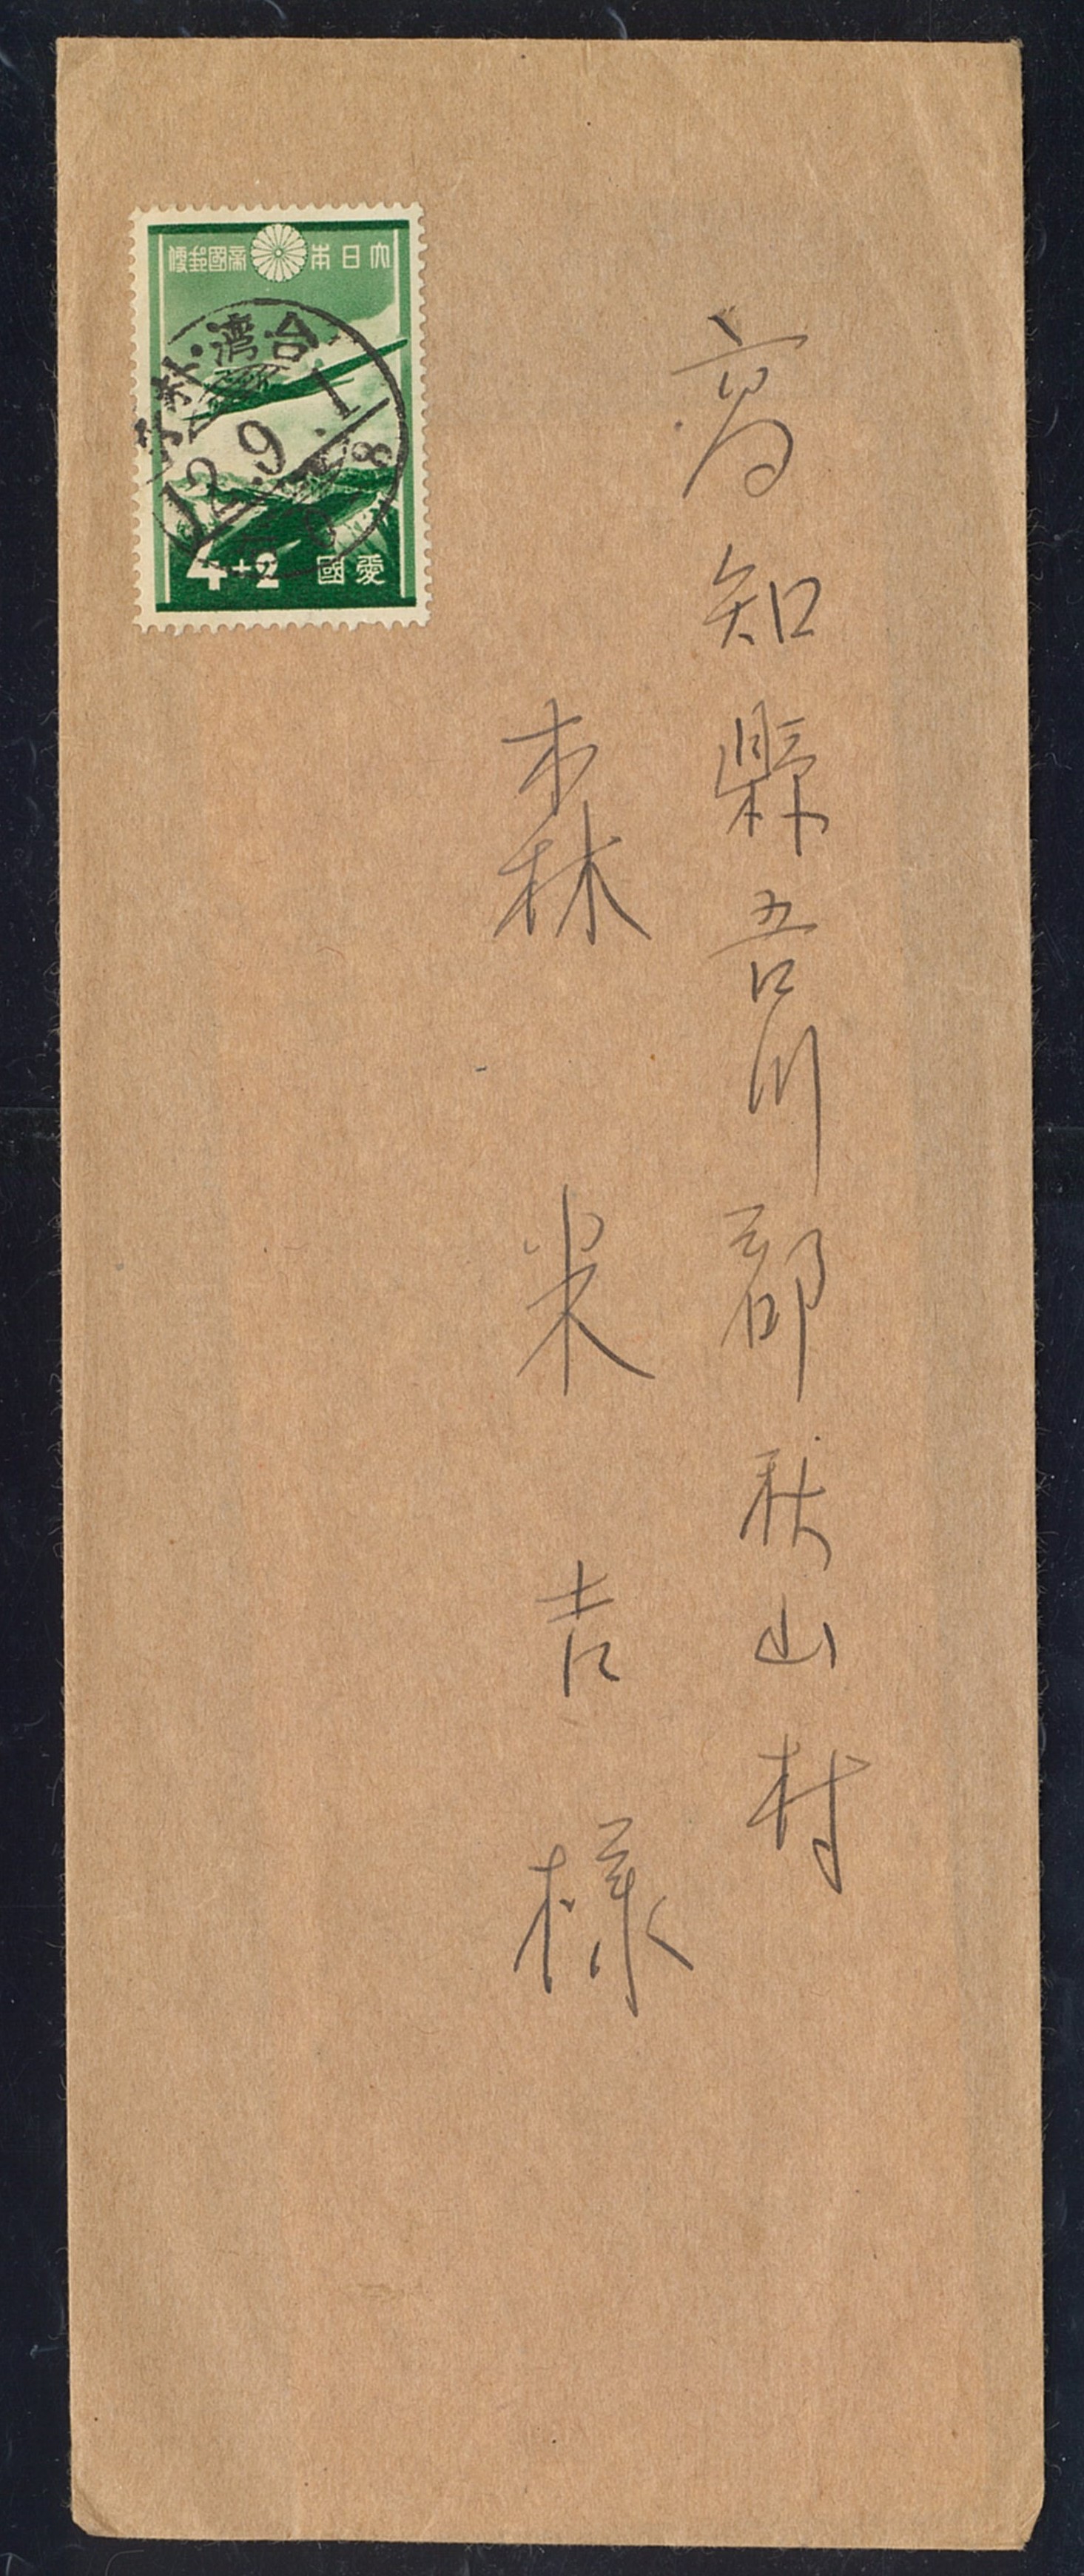 高知縣吾川郡秋山村
森 米吉 様
大日本帝國郵便
台湾・朴子
12.9.1
4+2
愛國